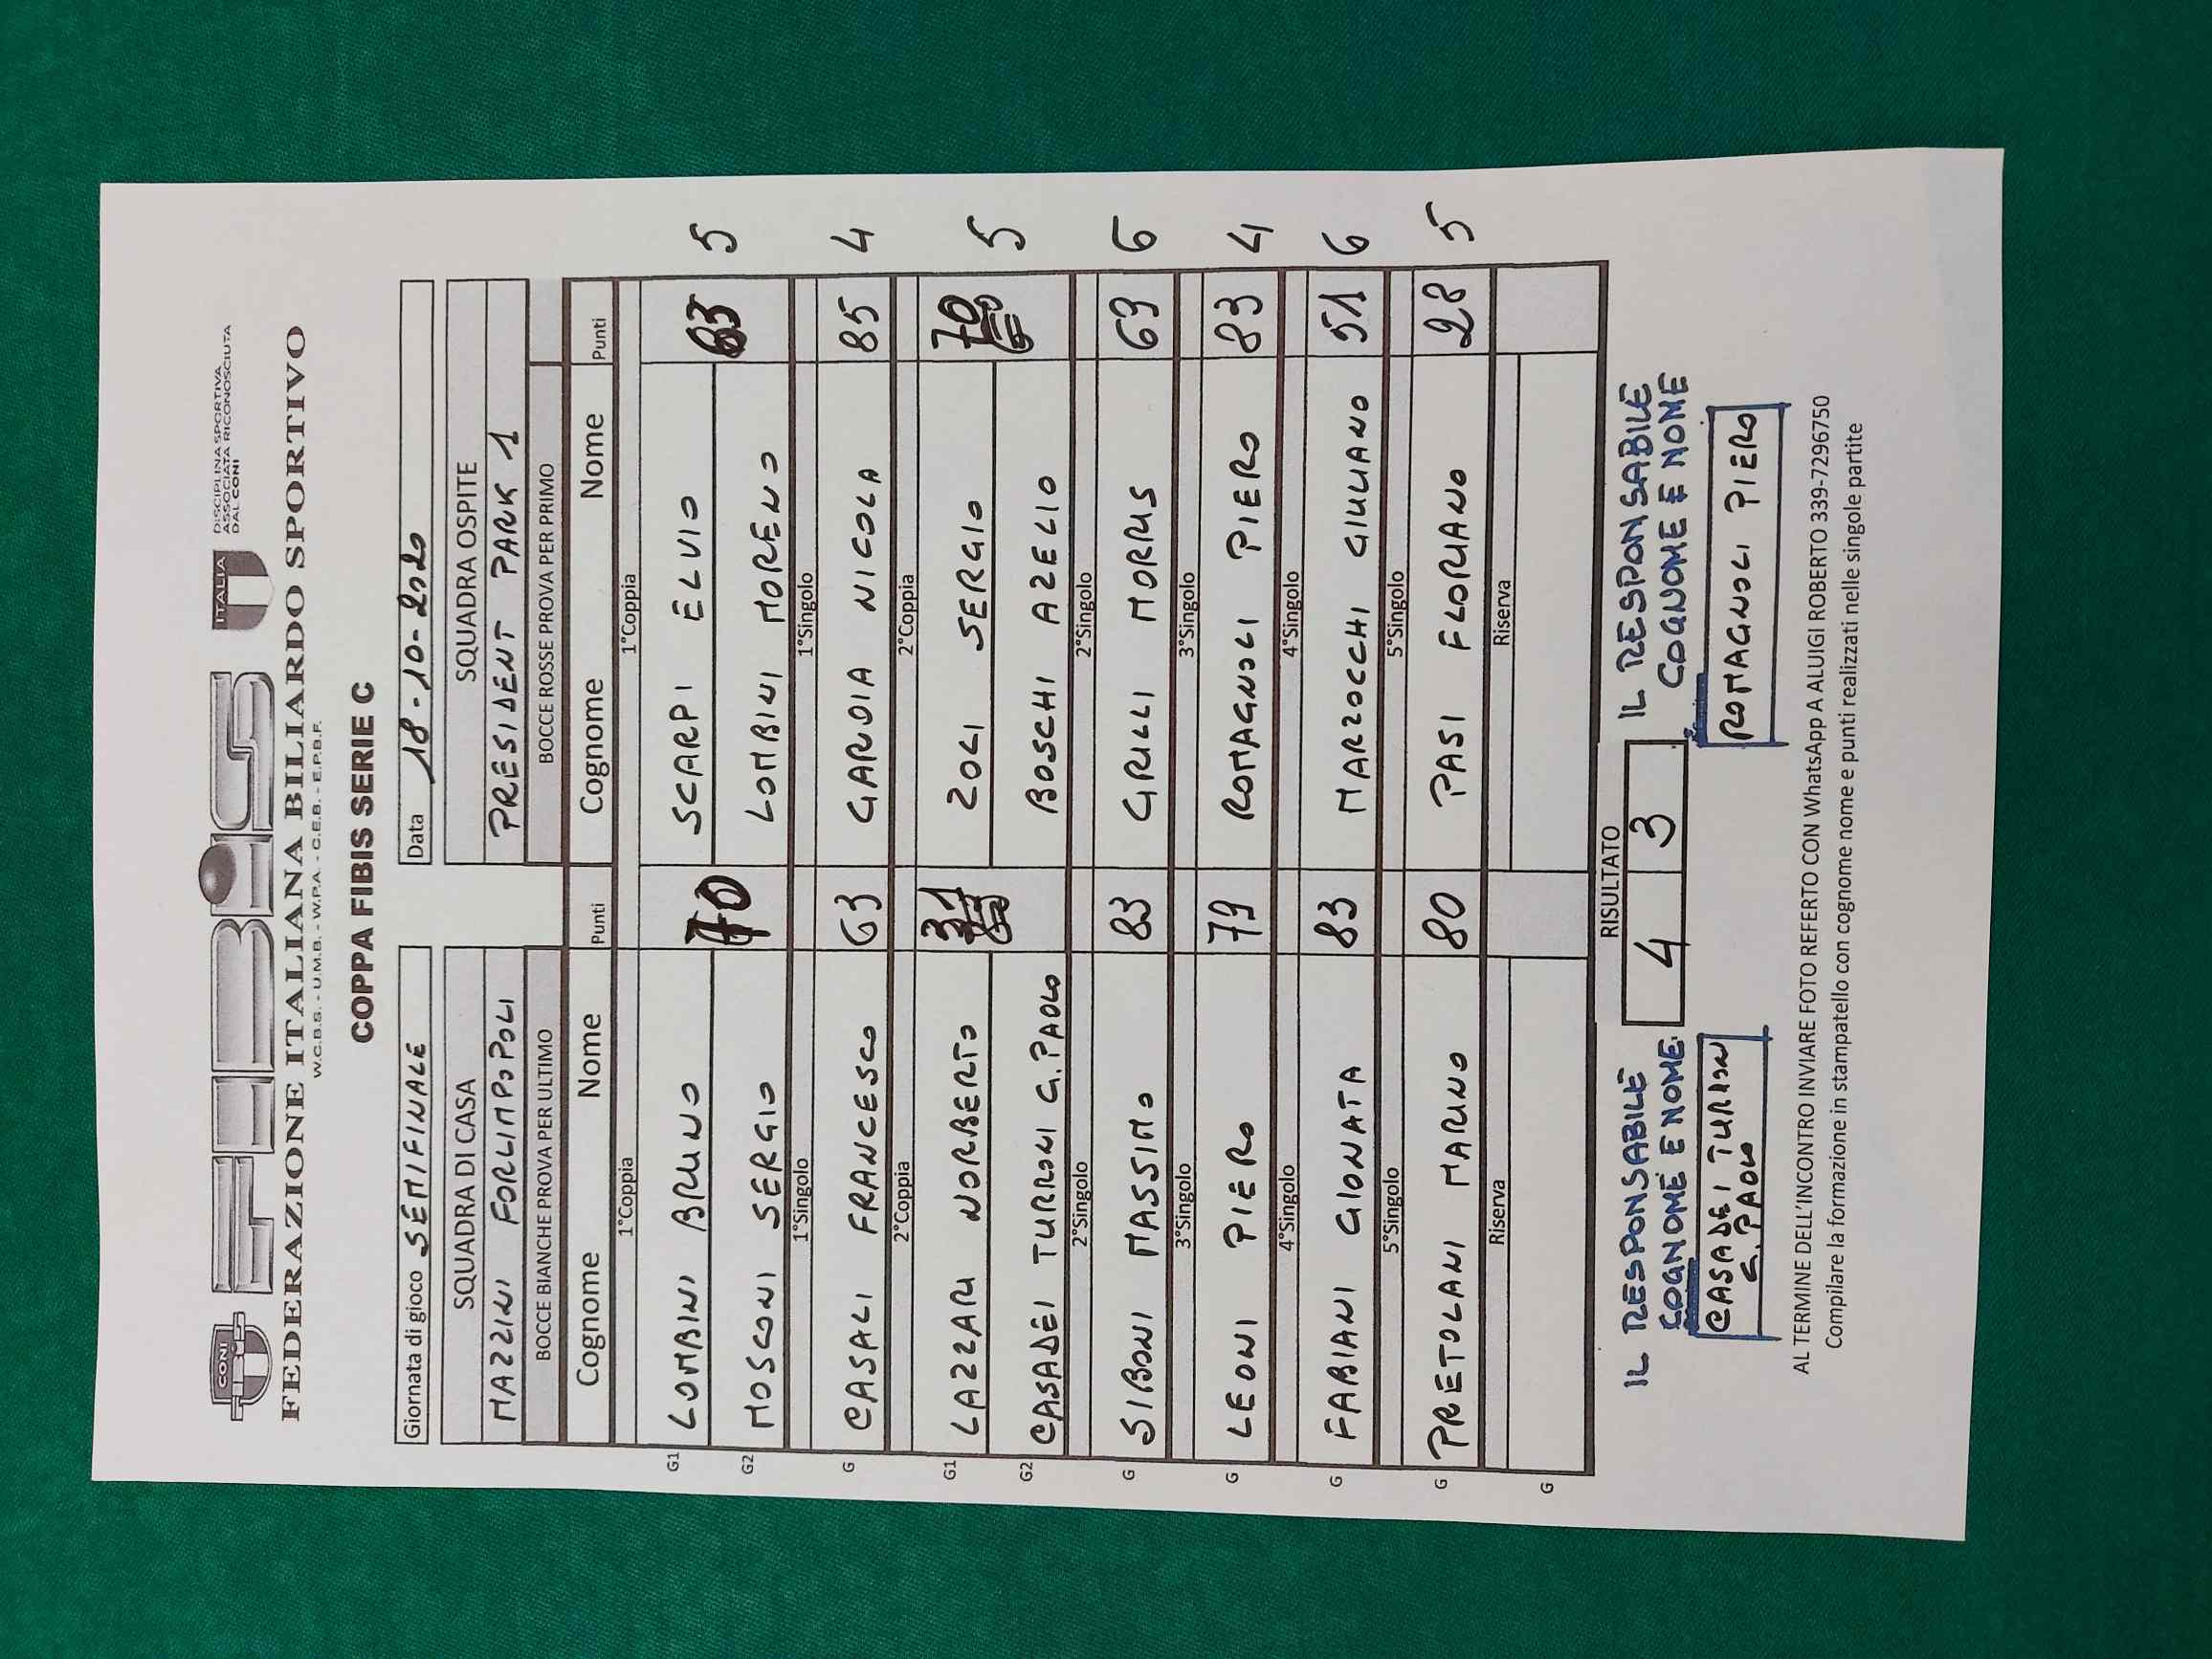 CONI
FIBiS
ITALIA
DISCIPLINA SPORTIVA
ASSOCIATA RICONOSCIUTA
DAL CONI
FEDERAZIONE ITALIANA BILIARDO SPORTIVO
W.C.B.S. - U.M.B. - W.P.A. - C.E.B. - E.P.B.F.
COPPA FIBIS SERIE C
Giornata di gioco SEMIFINALE Data 18-10-2020
SQUADRA DI CASA SQUADRA OSPITE
MAZZINI FORLIMPOPOLI PRESIDENT PARK 1
BOCCE BIANCHE PROVA PER ULTIMO BOCCE ROSSE PROVA PER PRIMO
Cognome Nome Punti Cognome Nome Punti
1°Coppia 1°Coppia
G1 LOMBINI BRUNO SCARPI ELVIO
70 63 5
G2 MOSCONI SERGIO LOMBINI MORENO
1°Singolo 1°Singolo
G CASALI FRANCESCO 63 GARDIA NICOLA 85 4
2°Coppia 2°Coppia
G1 LAZZARI NORBERTO 31 ZOLI SERGIO 70
5
G2 CASADEI TURRONI G.PAOLO BOSCHI AZELIO
2°Singolo 2°Singolo
G SIBONI MASSIMO 83 GRILLI MORRIS 69 6
3°Singolo 3°Singolo
G LEONI PIERO 79 ROMAGNOLI PIERO 83 4
4°Singolo 4°Singolo
G FABIANI GIONATA 83 MARZOCCHI GIULIANO 51 6
5°Singolo 5°Singolo
G PRETOLANI MARINO 80 PASI FLORIANO 28 5
Riserva Riserva
G
RISULTATO
4 3
IL RESPONSABILE
COGNOME E NOME
CASADEI TURRONI
G.PAOLO
IL RESPONSABILE
COGNOME E NOME
ROMAGNOLI PIERO
AL TERMINE DELL'INCONTRO INVIARE FOTO REFERTO CON WhatsApp A ALUIGI ROBERTO 339-7296750
Compilare la formazione in stampatello con cognome nome e punti realizzati nelle singole partite